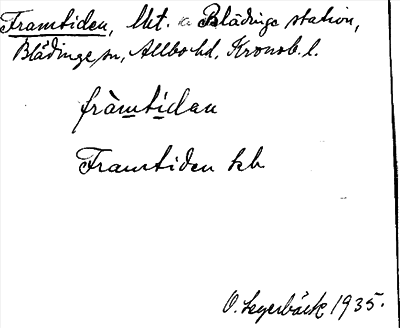 Framtiden, lht. a Blädinge station,
Blädinge sn, Allbo hd, Kronob. l.
fràmtidan
Framtiden kb
O. Legerbäck 1935.